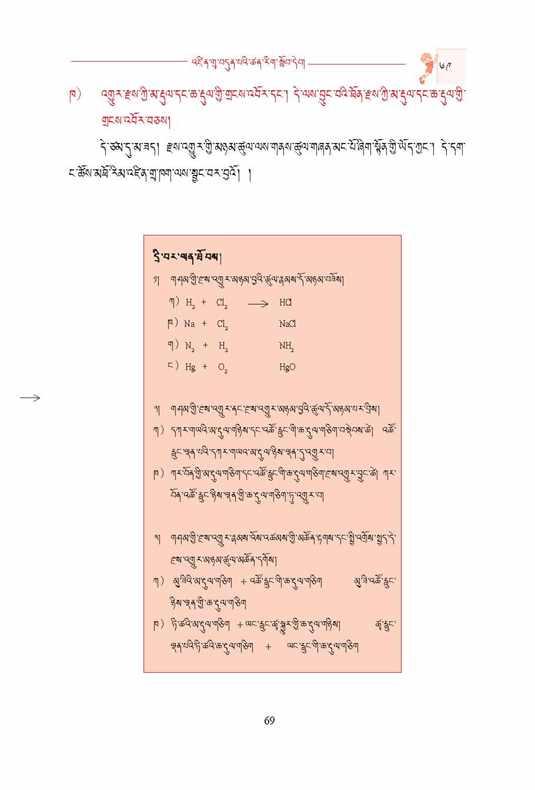 འཛིན་གྲྭ་བདུན་པའི་ཚན་རིག་སློབ་དེབ།
༦༩
ཁ) འགྱུར་རྫས་ཀྱི་མ་རྡུལ་དང་ཆ་རྡུལ་གྱི་གྲངས་འབོར་དང་། དེ་ལས་བྱུང་བའི་ཐོན་རྫས་ཀྱི་མ་རྡུལ་དང་ཆ་རྡུལ་གྱི་
གྲངས་འབོར་བཅས།
དེ་ཙམ་དུ་མ་ཟད། རྫས་འགྱུར་གྱི་མཉམ་ཚུལ་ལས་གནས་ཚུལ་གཞན་མང་པོ་ཞིག་སྟོན་གྱི་ཡོད་ཀྱང་། དེ་དག་
ང་ཚོས་མཐོ་རིམ་འཛིན་གྲྭ་ཁག་ལས་སྦྱང་བར་བྱའོ། །
དྲི་བར་ལན་ཐོབས།
༡། གཤམ་གྱི་རྫས་འགྱུར་མཉམ་བྱའི་ཚུལ་རྣམས་དོ་མཉམ་བཟོས།
ཀ) H₂ + Cl₂ ⟶ HCl
ཁ) Na + Cl₂ NaCl
ག) N₂ + H₂ NH₃
ང) Hg + O₂ HgO
⟶
༢། གཤམ་གྱི་རྫས་འགྱུར་ནང་རྫས་འགྱུར་མཉམ་བྱའི་ཚུལ་དོ་མཉམ་པར་བྲིས།
ཀ) དཀར་གཡའི་མ་རྡུལ་གཉིས་དང་འཚོ་རླུང་གི་ཆ་རྡུལ་གཅིག་བསྡེབས་ཚེ། འཚོ་
རླུང་ལྡན་པའི་དཀར་གཡའ་མ་རྡུལ་ཉིས་ལྡན་དུ་འགྱུར་བ།
ཁ) གར་བོན་གྱི་མ་རྡུལ་གཅིག་དང་འཚོ་རླུང་གི་ཆ་རྡུལ་གཅིག་རྫས་འགྱུར་བྱུང་ཚེ། གར་
བོན་འཚོ་རླུང་ཉིས་ལྡན་གྱི་ཆ་རྡུལ་གཅིག་ཏུ་འགྱུར་བ།
༣། གཤམ་གྱི་རྫས་འགྱུར་རྣམས་འོས་འཚམས་གྱི་མཚོན་རྟགས་དང་སྤྱི་འགྲོས་སྤྱད་དེ་
རྫས་འགྱུར་མཉམ་ཚུལ་མཚོན་དགོས།
ཀ) མུ་ཟིའི་མ་རྡུལ་གཅིག + འཚོ་རླུང་གི་ཆ་རྡུལ་གཅིག མུ་ཟི་འཚོ་རླུང་
ཉིས་ལྡན་གྱི་ཆ་རྡུལ་གཅིག
ཁ) ཏི་ཚའི་མ་རྡུལ་གཅིག + ཡང་རླུང་ཚྭ་སྐྱུར་གྱི་ཆ་རྡུལ་གཉིས། ཚྭ་རླུང་
ལྡན་པའི་ཏི་ཚའི་ཆ་རྡུལ་གཅིག + ཡང་རླུང་གི་ཆ་རྡུལ་གཅིག
69